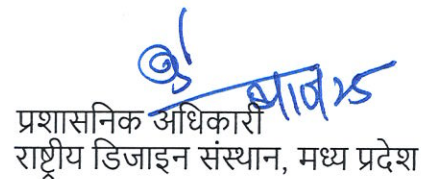 प्रशासनिक अधिकारी
राष्ट्रीय डिजाइन संस्थान, मध्य प्रदेश